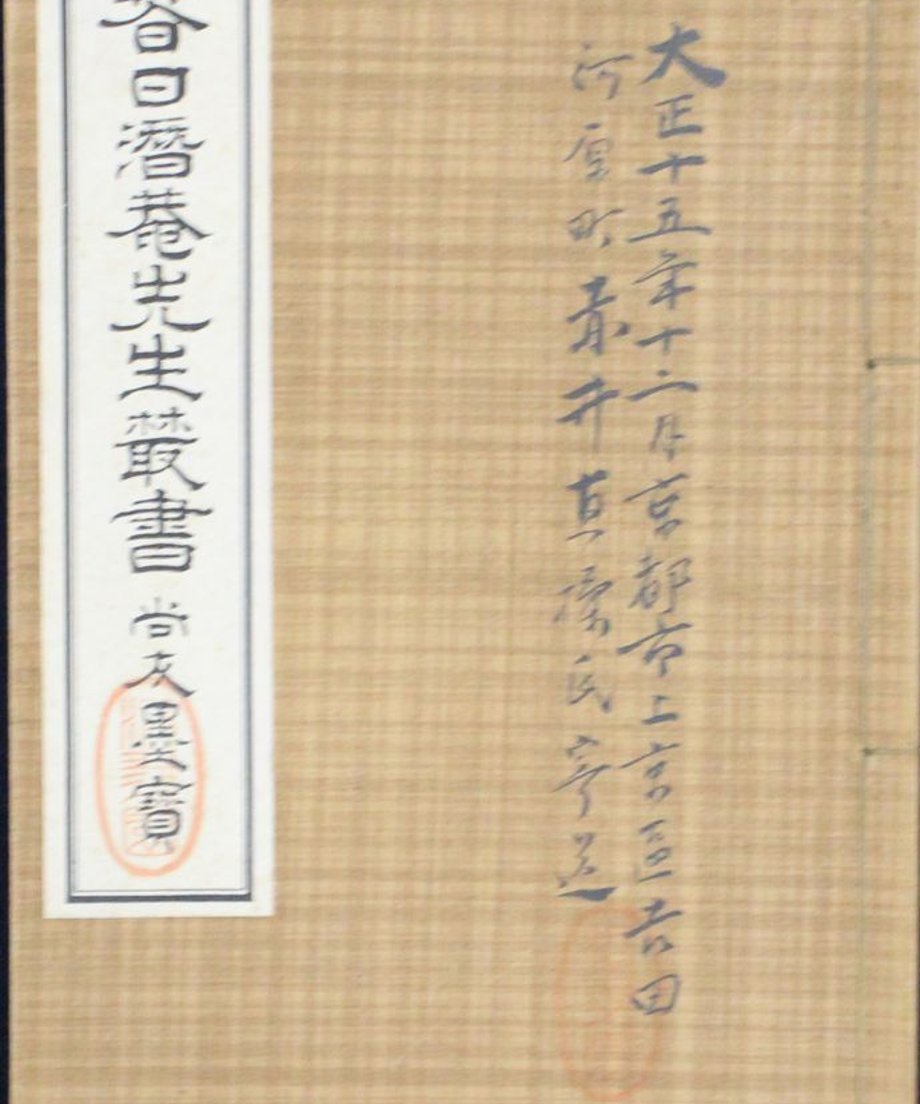 大正十五年十二月京都市上京區吉田
河原町井真氏寄送
春日潜菴先生叢書 尚友墨寶